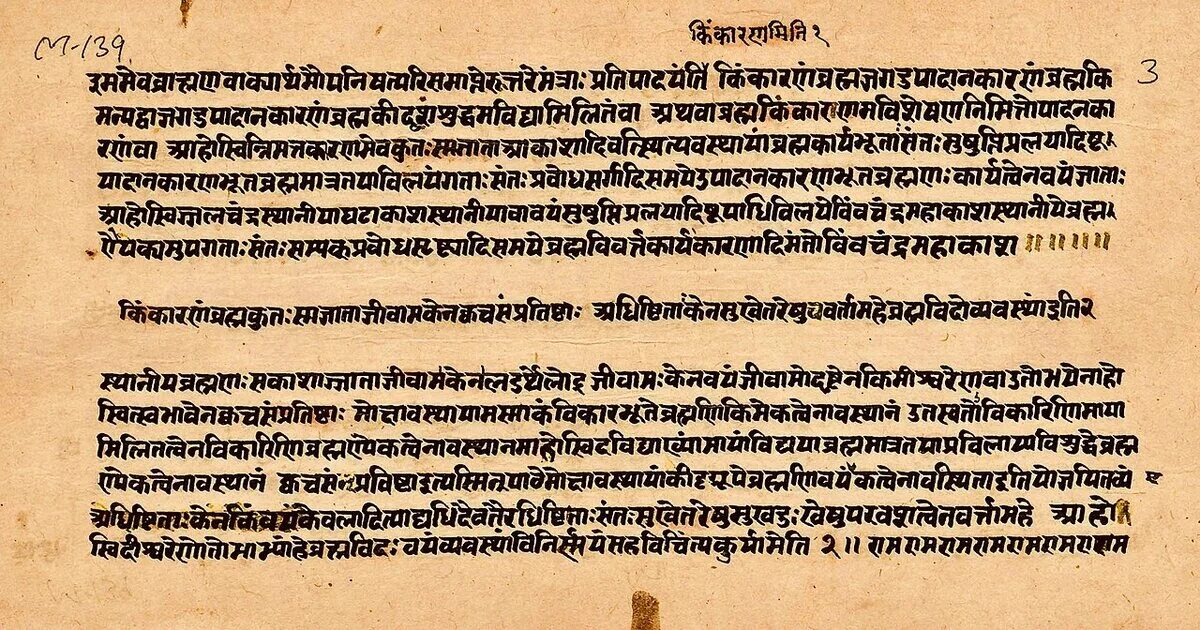 M-139
किंकारणमिति २
3
इममेवब्राह्मणवाक्यार्थमौपनिषत्परिसमाप्तेरुत्तरेमंत्राः प्रतिपादयंति किंकारणंब्रह्मजगदुपादानकारणंब्रह्मकि
मन्यद्वाजगदुपादानकारणंब्रह्मकीदृशंशुद्धमविद्यामिलितंवा अथवाब्रह्मकिंकारणमविशेषणनिमित्तोपादनका
रणंवा आहोस्विन्निमत्तकारणमेवकुतःस्मजाताआकाशादिवत्स्थित्यवस्थायांब्रह्मकार्यभूताःसंतःसुषुप्तिप्रलयादिषु
पादानकारणभूतब्रह्ममात्रतयाविलयंगताःसंतःप्रबोधसर्गादिसमयेउपादानकारणभूतब्रह्मणःकार्यत्वेनवयंजाताः
आहोस्विज्जलचंद्रस्थानीयाघटाकाशस्थानीयावावयंसुषुप्तिप्रलयादिषूपाधिविलयेबिंबचंद्रमहाकाशस्थानीयेब्रह्म
णैक्यमुपगताःसंतःसम्यक्प्रबोधसृष्ट्यादिसमयेब्रह्मविवर्त्तकार्यकारणादिमंतोबिंबचंद्रमहाकाश ॥॥॥॥
किंकारणंब्रह्मकुतःस्मजाताजीवामकेनक्वचसंप्रतिष्ठाः अधिष्ठिताःकेनसुखेतरेषुवर्तामहेब्रह्मविदोव्यवस्थांइति२
स्थानीयब्रह्मणःसकाशाज्जाताजीवामकेन जीवामःकेनवयंजीवामो किमीश्वरेणवाउतोभयेनाहो
स्वित्स्वभावेनक्वचसंप्रतिष्ठाः मोक्षावस्थायामस्माकंविकारभूतेब्रह्मणिकिमेकत्वेनावस्थानं उतस्वतोविकारिणिमाया
मिलितत्वेनविकारिणिब्रह्मण्येकत्वेनावस्थानमाहोस्विदविद्याख्यांमायांविद्ययाब्रह्ममात्रतयाप्रविलाप्यविशुद्धेब्रह्म
ण्येकत्वेनावस्थानं क्वचसंप्रविष्ठाइत्यस्मिन्पाठेमोक्षावस्थायांकीदृग्रूपेब्रह्मणिवयंएकत्वेनावस्थिताइतियोजयितव्यं
अधिष्ठिताःकेन केवलादित्याद्यधिदैवतैरधिष्ठिताःसंतःसुखेतरेषुसुखदुःखेषुपरवशत्वेनवर्त्तामहे आहो
स्विदीश्वरेणेतोमाम्यांहेब्रह्मविदःवयंव्यवस्थांविनिर्णयंसहविचिंत्यकुर्यामेति २॥ रामरामरामरामरामरामराम